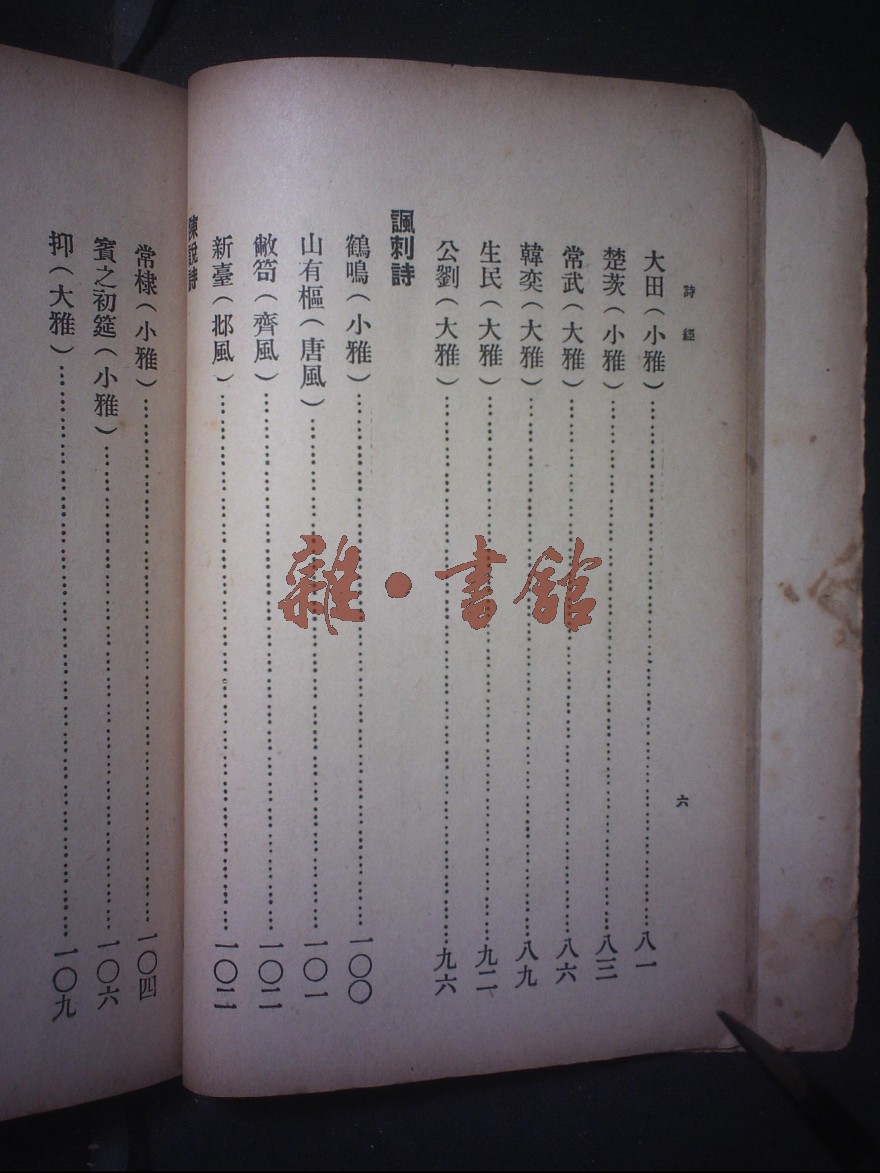 詩經
六
大田(小雅)……八一
楚茨(小雅)……八三
常武(大雅)……八六
韓奕(大雅)……八九
生民(大雅)……九二
公劉(大雅)……九六
諷刺詩
鶴鳴(小雅)……一〇〇
山有樞(唐風)……一〇一
敝笱(齊風)……一〇二
新臺(邶風)……一〇二
陳說詩
常棣(小雅)……一〇四
賓之初筵(小雅)……一〇六
抑(大雅)……一〇九
雜·書館